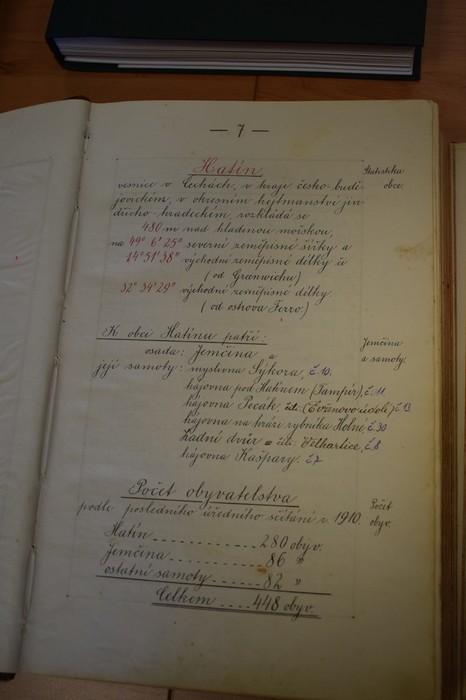 — 7 —
Hatín,
Statistika
obce.
vesnice v Čechách, v kraje česko-budě-
jovickém, v okresním hejtmanství jin-
dřicho-hradeckém, rozkládá se
480 m nad hladinou mořskou,
na 49° 6' 25" severní zeměpisné šířky a
14° 51' 38" východní zeměpisné délky či
(od Granwichu)
32° 34' 29" východní zeměpisné délky
(od ostrova Ferro.)
K obci Hatínu patří:
Jemčina
a samoty.
osada: Jemčina a
její samoty: myslivna Sýkora, č. 10.
hájovna pod Hatínem (Tampír), č. 11
hájovna Pecák, (Evženovo údolí) č. 13
hájovna na hrázi rybníka Holné č. 30
Ladní dvůr č. 8
hájovna Kašpary. č. 7
Počet obyvatelstva
Počet
obyv.
podle posledního úředního sčítání r. 1910.
Hatín ............ 280 obyv.
Jemčina ............ 86 "
ostatní samoty ...... 82 "
Celkem .... 448 obyv.